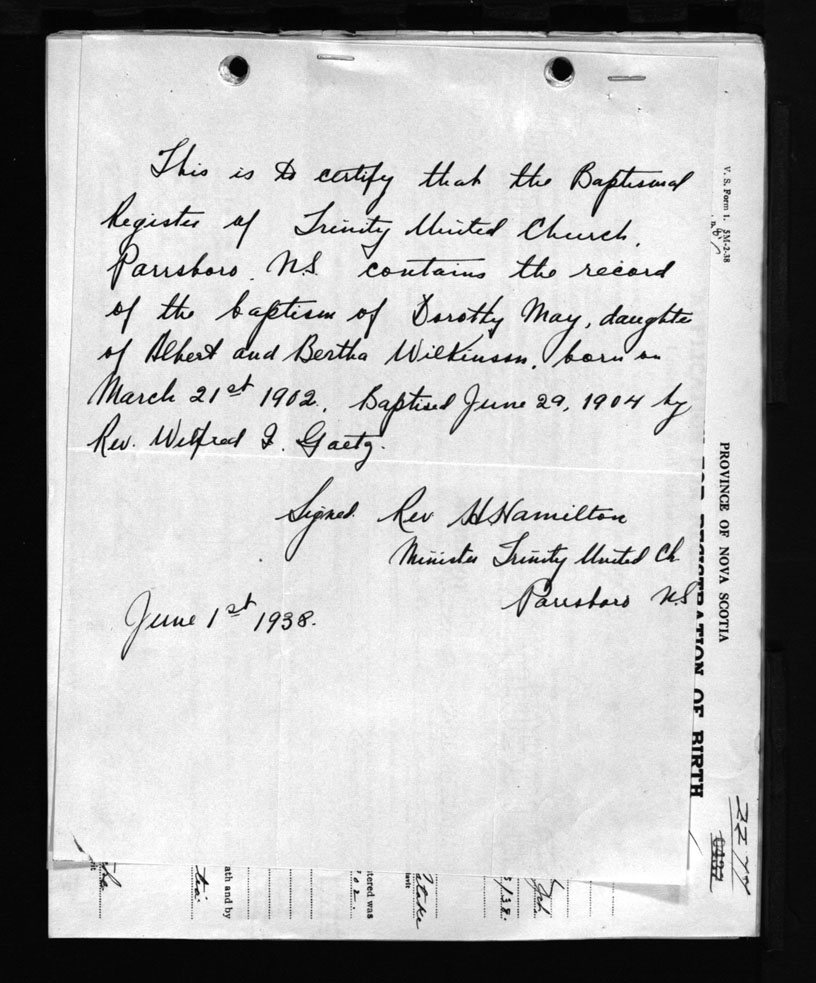 This is to certify that the Baptismal
Register of Trinity United Church,
Parrsboro, N.S. contains the record
of the baptism of Dorothy May, daughter
of Albert and Bertha Wilkinson, born on
March 21st 1902. Baptised June 29, 1904 by
Rev. Wilfred I. Gaetz.
Signed. Rev H Hamilton
Minister Trinity United Ch
Parrsboro N.S
June 1st 1938.
V. S. Form 1. 5M-2-38
PROVINCE OF NOVA SCOTIA
REGISTRATION OF BIRTH
2277
0437
ath and by
tered was
'02.
5/38.